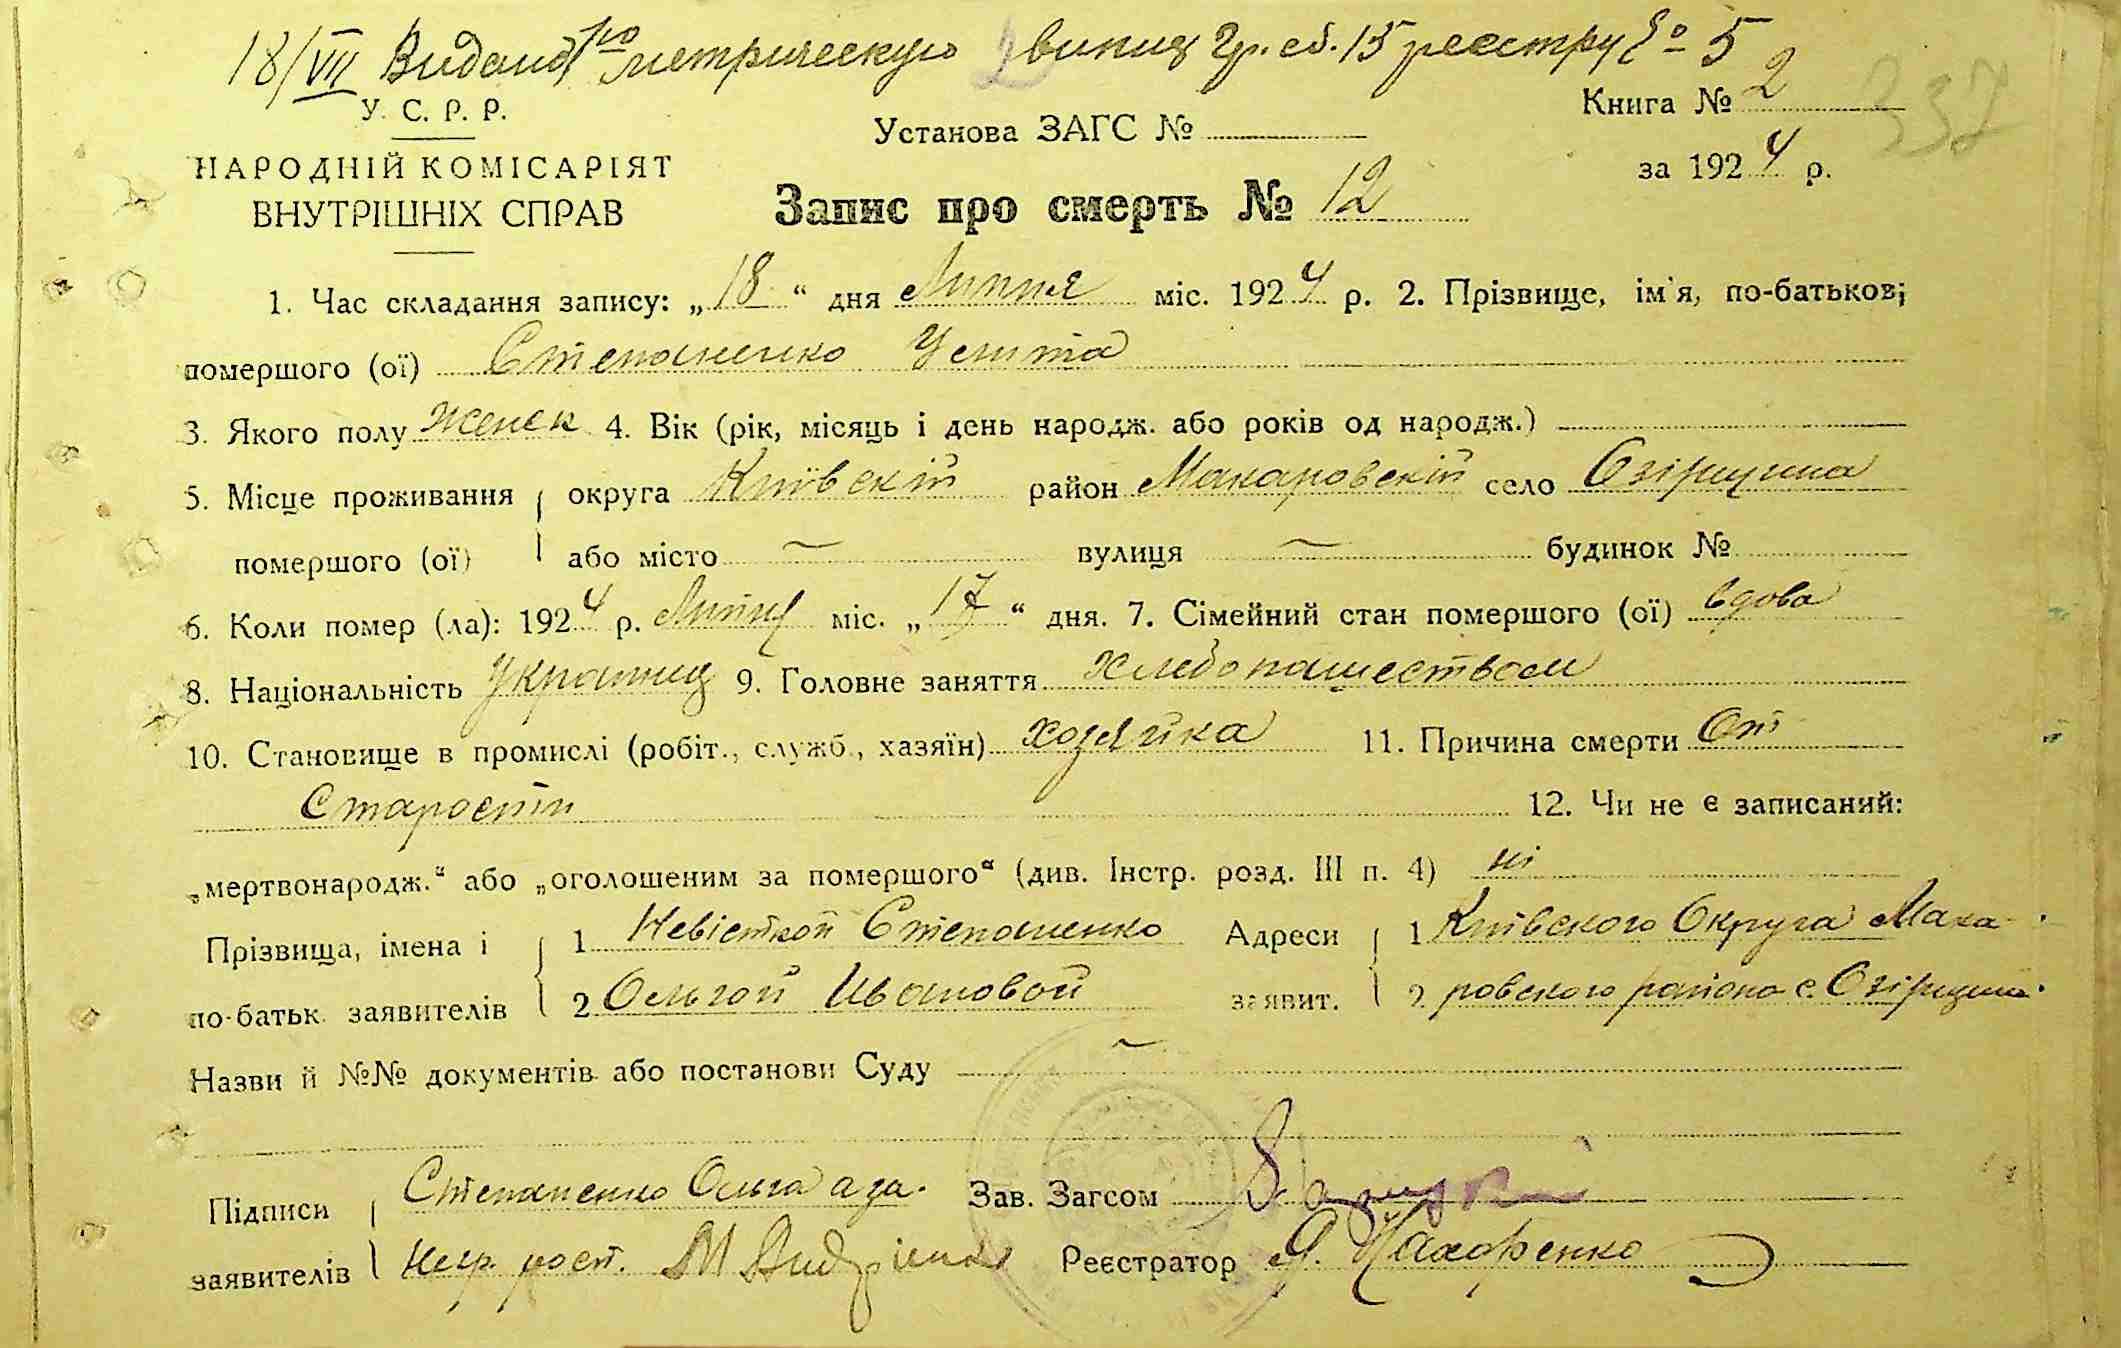 18/VII Видано метрическую випись гр. сб. 15 реестру № 5
У. С. Р. Р.
НАРОДНІЙ КОМІСАРІЯТ
ВНУТРІШНІХ СПРАВ
Установа ЗАГС №
Книга № 2
337
за 1924 р.
Запис про смерть № 12
1. Час складання запису: „18“ дня Липня міс. 1924 р. 2. Прізвище, ім'я, по-батькові
помершого (ої) Степаненко Улита
3. Якого полу женск 4. Вік (рік, місяць і день народж. або років од народж.)
5. Місце проживання округа Київскій район Макаровскій село Озірщина
помершого (ої) або місто — вулиця — будинок №
6. Коли помер (ла): 1924 р. Липня міс. „17“ дня. 7. Сімейний стан помершого (ої) вдова
8. Національність Украинц 9. Головне заняття хлебопашеством
10. Становище в промислі (робіт., служб., хазяїн) хозяйка 11. Причина смерти От
Старости 12. Чи не є записаний:
„мертвонародж.“ або „оголошеним за помершого“ (див. Інстр. розд. III п. 4) ні
Прізвища, імена і 1 Невісткой Степаненко Адреси 1 Київского Округа Мака-
по-батьк. заявителів 2 Ольгой Ивановой заявит. 2 ровского района с. Озірщина
Назви й №№ документів або постанови Суду —
Підписи Степаненко Ольга а за Зав. Загсом
заявителів негр. росп. Реєстратор